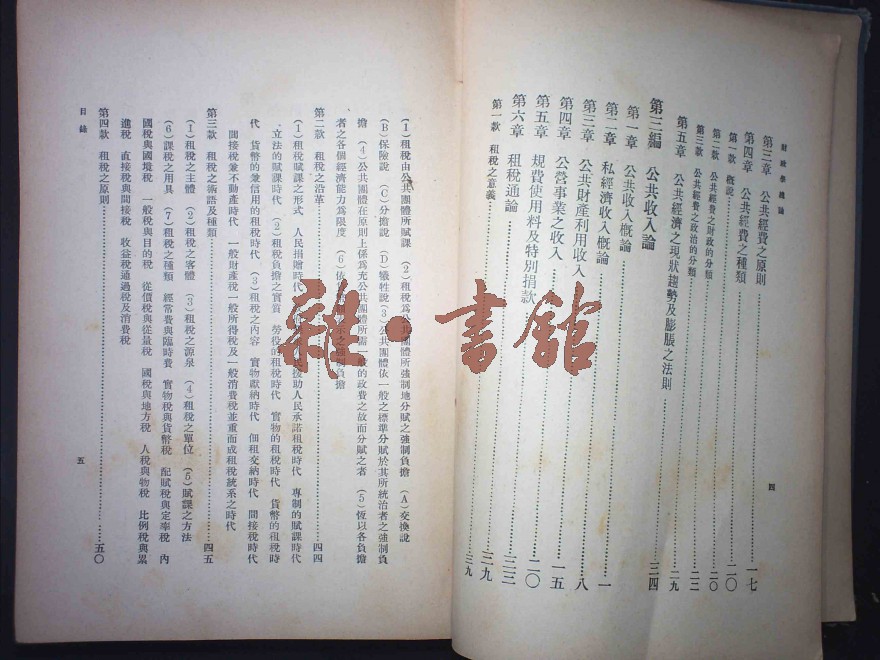 財政學總論
第三章 公共經費之原則 一七
第四章 公共經費之種類 二〇
第一款 概說
第二款 公共經費之財政的分類 二〇
第三款 公共經費之政治的分類
第五章 公共經濟之現狀趨勢及膨脹之法則 二九
第三編 公共收入論 三四
第一章 公共收入概論 一
第二章 私經濟收入概論
第三章 公共財產利用收入 八
第四章 公營事業之收入 一五
第五章 規費使用料及特別捐款 二〇
第六章 租稅通論
第一款 租稅之意義
四
(1)租稅由公共團體所賦課 (2)租稅為公共團體所強制地分賦之強制負擔 (A)交換說
(B)保險說 (C)分擔說 (D)犧牲說 (3)公共團體依一般之標準分賦於其所統治者之強制負
擔 (4)公共團體在原則上係為充公共團體所需一般的政費之故而分賦之者 (5)恆以各負擔
者之各個經濟能力為限度 (6)依 負擔
第二款 租稅之沿革 四四
(1)租稅賦課之形式 人民捐贈時代 援助人民承諾租稅時代 專制的賦課時代
立法的賦課時代 (2)租稅負擔之實質 勞役的租稅時代 實物的租稅時代 貨幣的租稅時
代 貨幣的兼信用的租稅時代 (3)租稅之內容 實物獻納時代 佃租交納時代 間接稅時代
間接稅兼不動產時代 一般財產稅一般所得稅及一般消費稅並重而成租稅統系之時代
第三款 租稅之術語及種類 四五
(1)租稅之主體 (2)租稅之客體 (3)租稅之源泉 (4)租稅之單位 (5)賦課之方法
(6)課稅之用具 (7)租稅之種類 經常費與臨時費 實物稅與貨幣稅 配賦稅與定率稅 內
國稅與國境稅 一般稅與目的稅 從價稅與從量稅 國稅與地方稅 人稅與物稅 比例稅與累
進稅 直接稅與間接稅 收益稅通過稅及消費稅
第四款 租稅之原則 五〇
目錄
五
雜·書館